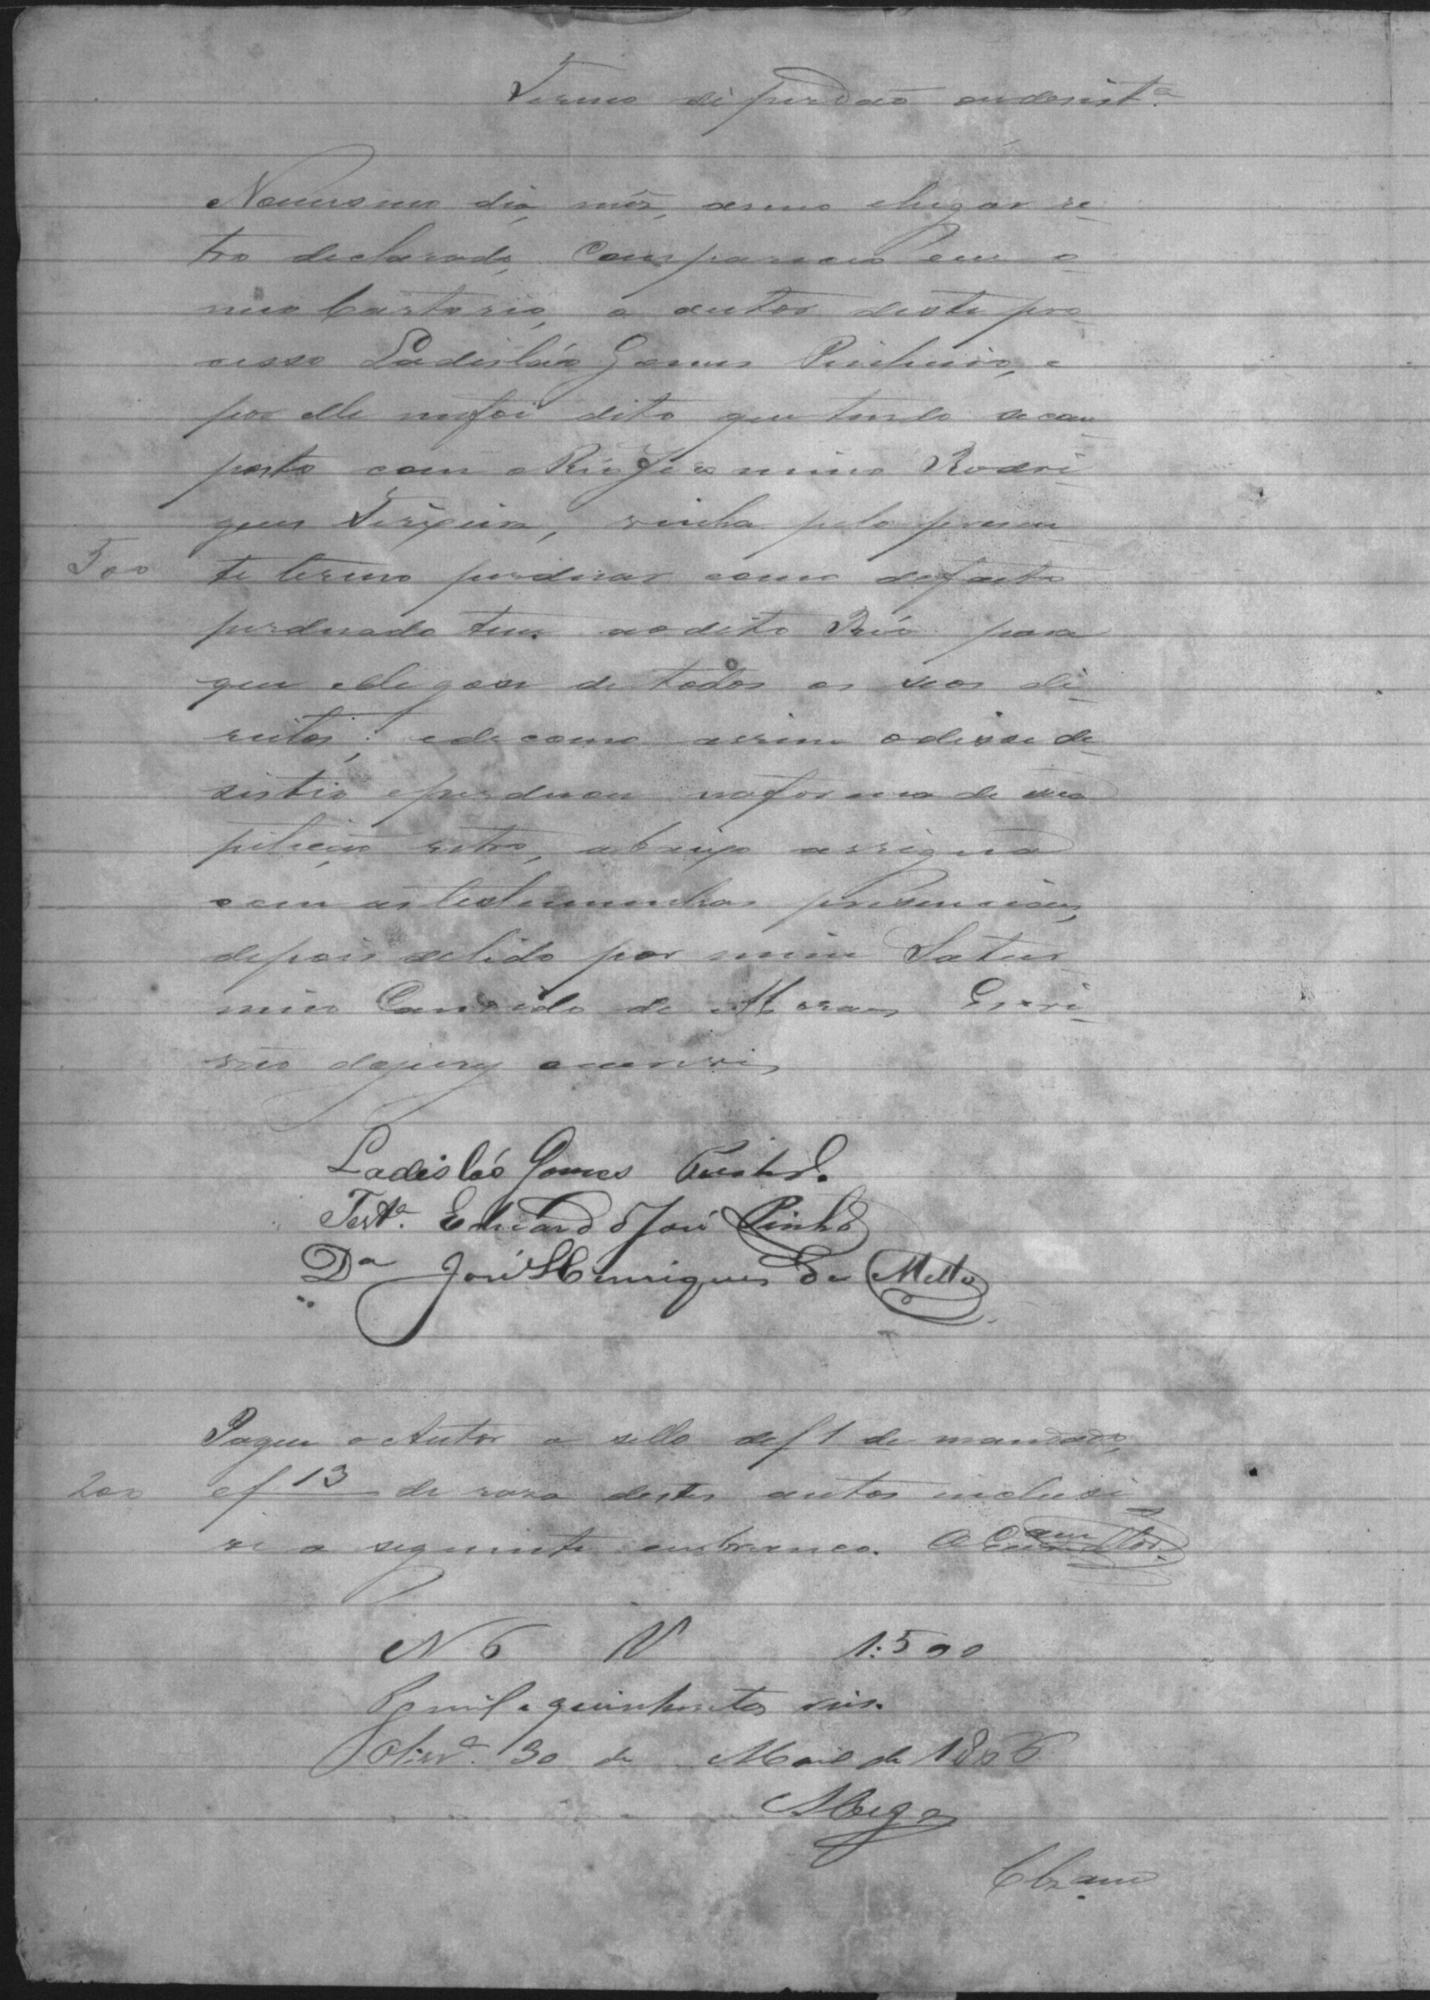 Termo de perdão ou desist.ª
No mesmo dia, mês, anno e lugar re-
tro declarado, compareceu em o
meo Cartorio, o autor deste pro-
cesso Ladisláo Gomes Pinheiro, e
por elle me foi dito que tendo se com
posto com o Réo Jeronimo Rodri-
gues Siqueira, vinha pelo presen-
500 te termo perduar como de facto
perduado tem ao dito Réo para
que elle gose de todos os seos di-
reitos; e de como assim o disse de-
sistio e perduou na forma de sua
petição retro, abaixo assigna
com as testemunhas presenciaes,
depois de lido por mim Satur
nino Candido de Moraes Escri-
vão do jury o escrevi
Ladisláo Gomes Pinhr.º
Test.ª Eduardo José Pinhº
Dª José Henriques de Mello
Pague o Autor o sello de f 1 de mandado,
200 e f 13 de raza destes autos inclusi
ve a seguinte em branco. O Escrivão
N 6 V 1:500
mil e quinhentos reis.
30 de Maio de 1886